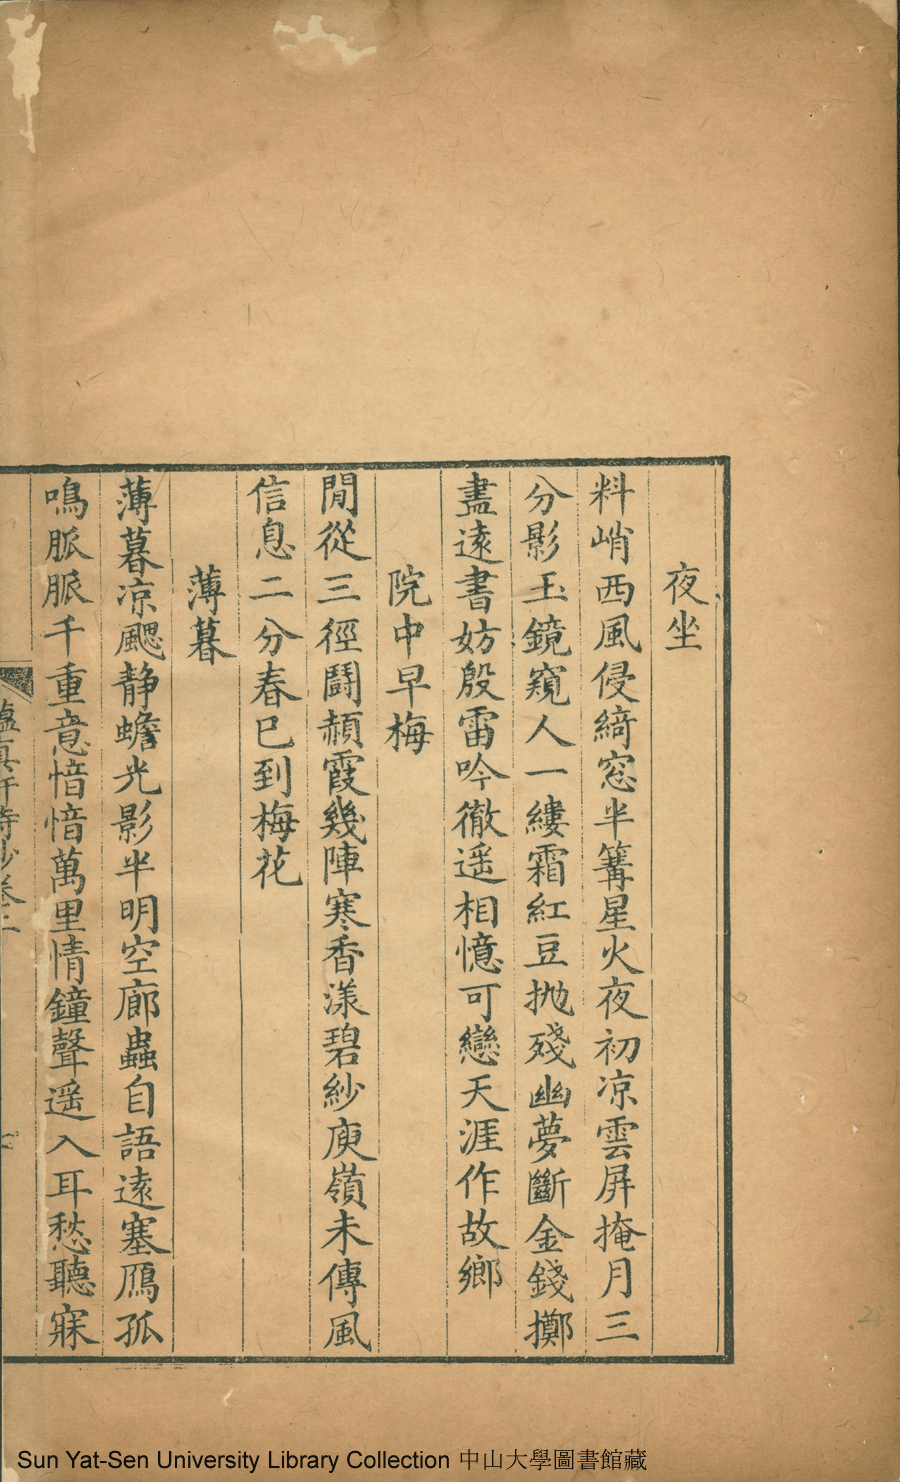 夜坐
料峭西風侵綺窓半篝星火夜初凉雲屏掩月三
分影玉鏡窺人一縷霜紅豆抛殘幽夢斷金錢擲
盡遠書妨殷雷吟徹遥相憶可戀天涯作故鄉
院中早梅
閒從三徑鬪頳霞幾陣寒香漾碧紗庾嶺未傳風
信息二分春已到梅花
薄暮
薄暮凉颸静蟾光影半明空廊蟲自語遠塞鴈孤
鳴脈脈千重意愔愔萬里情鐘聲遥入耳愁聽寐
Sun Yat-Sen University Library Collection 中山大學圖書館藏